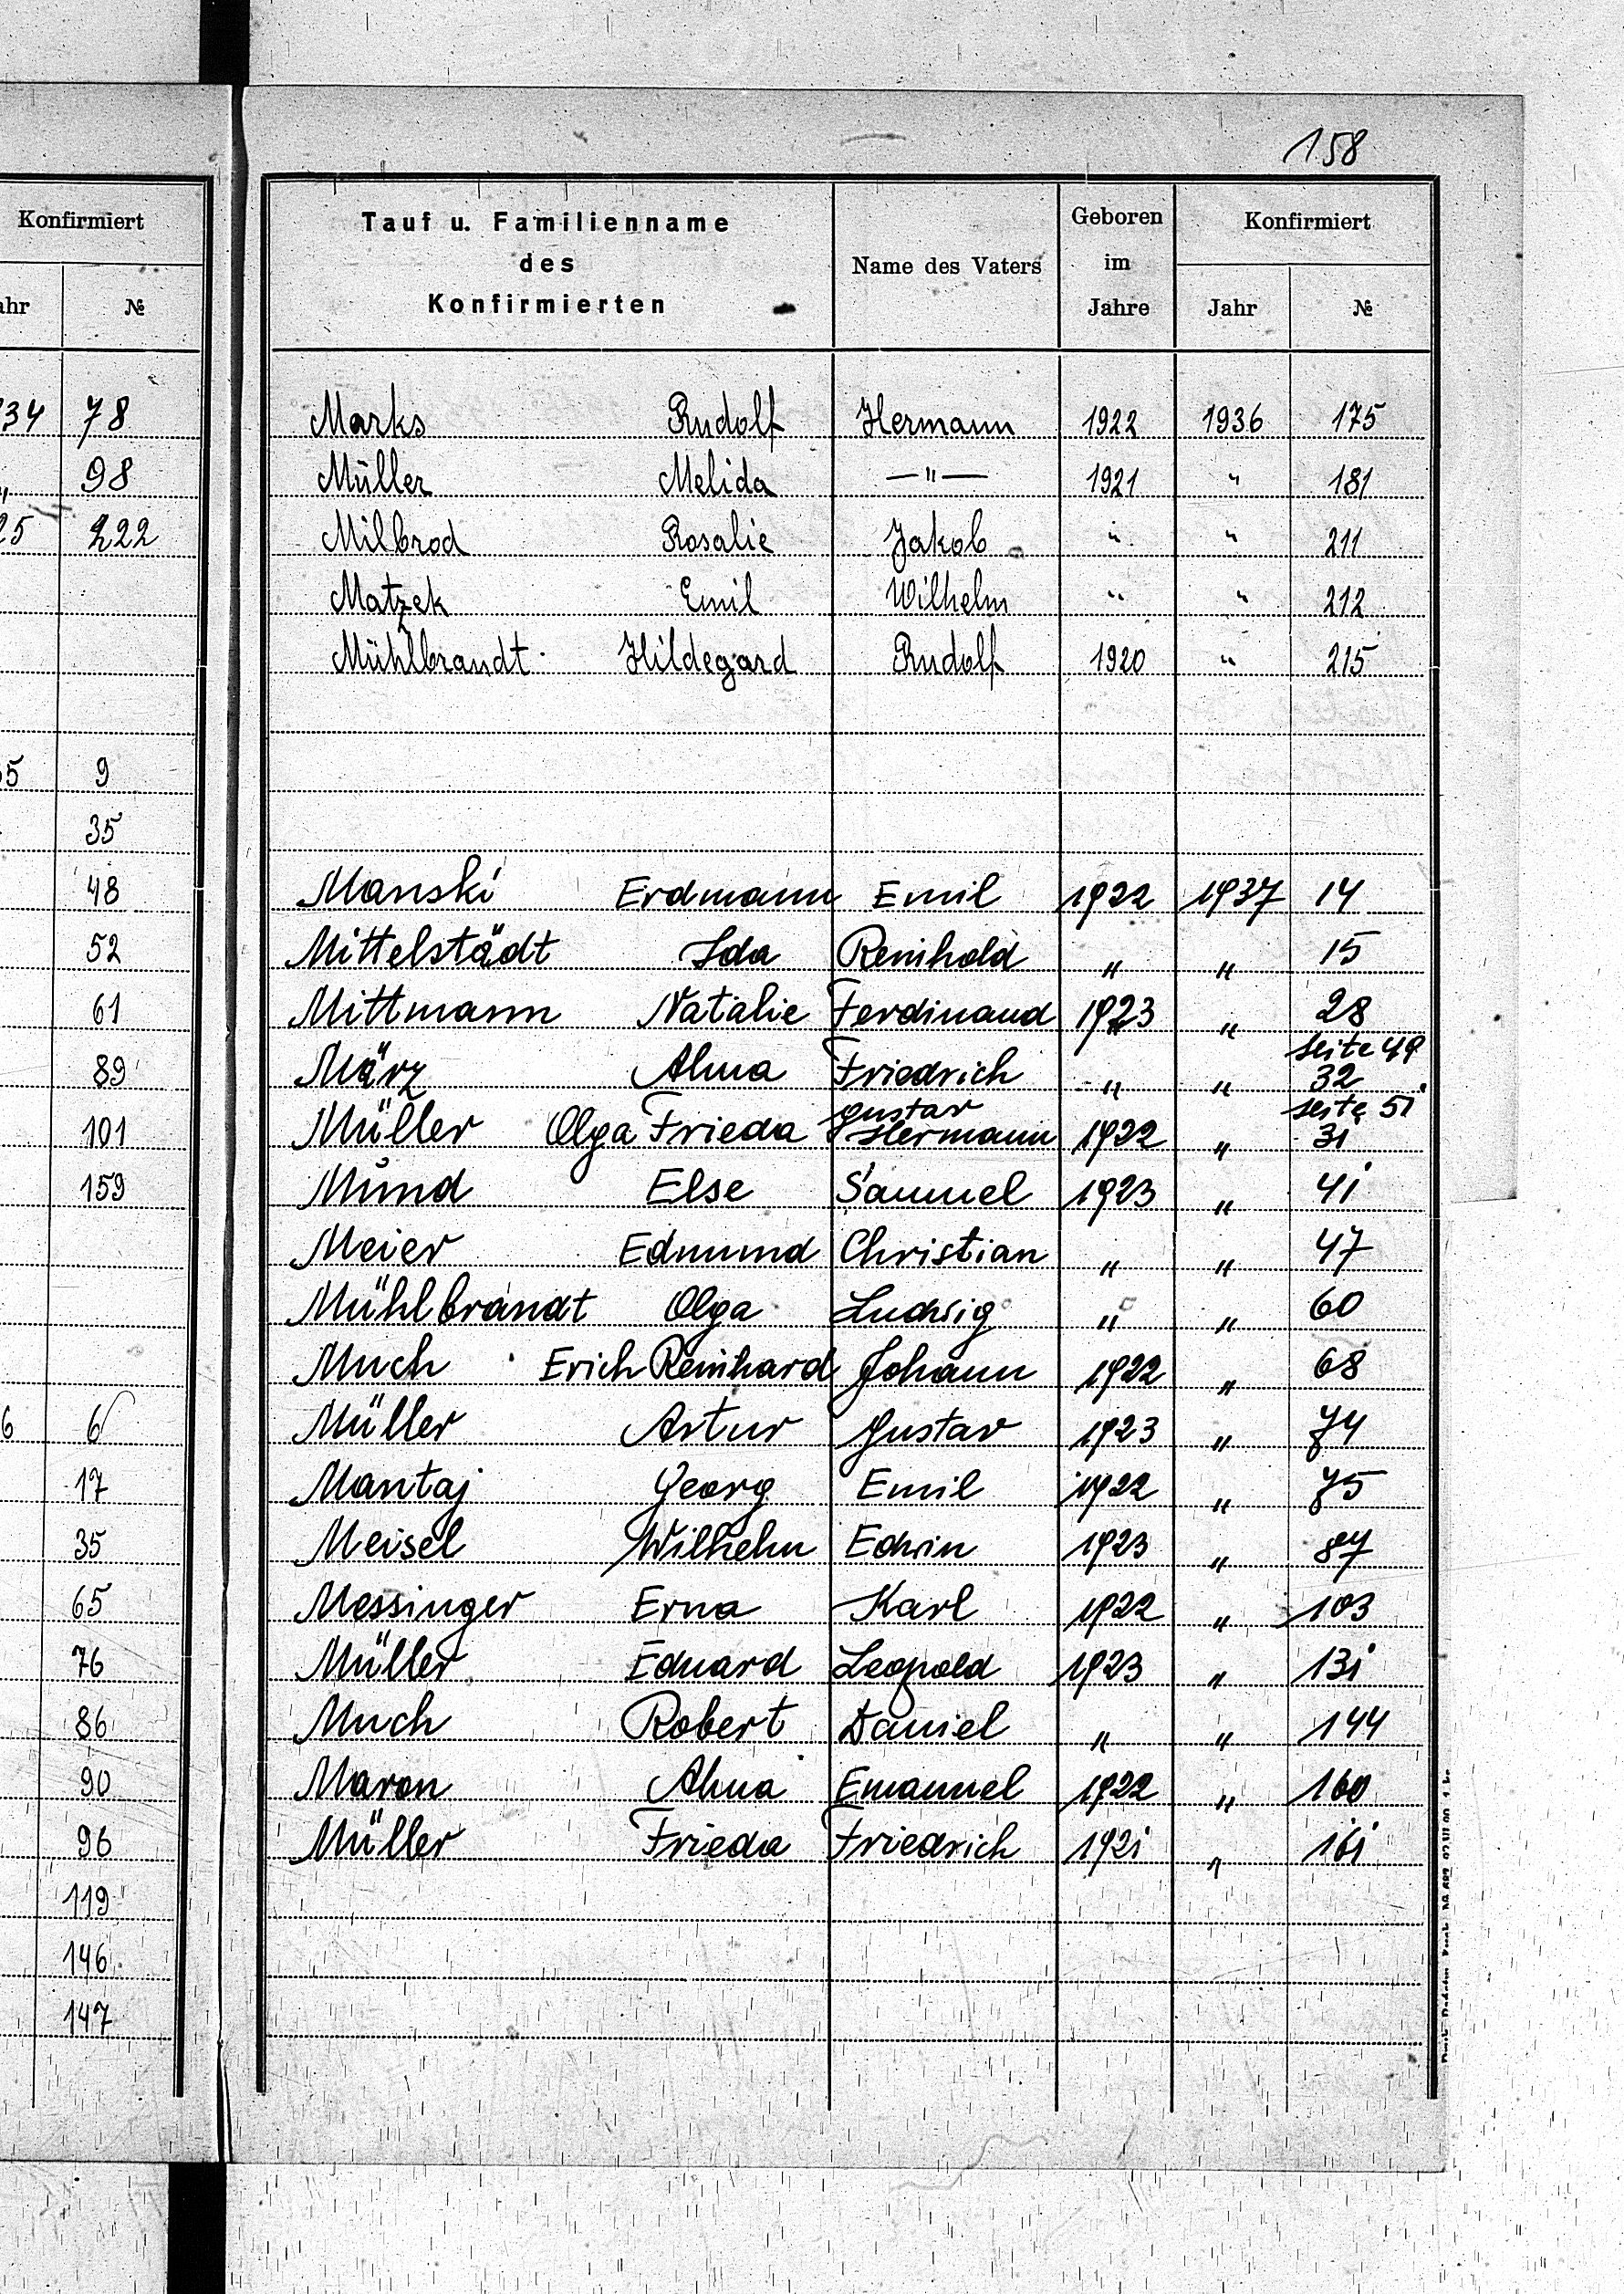 158
Konfirmiert
ahr №
34 78
" 98
25 222
35 9
35
48
52
61
89
101
159
6 6
17
35
65
76
86
90
96
119
146
147
Tauf u. Familienname des Konfirmierten Name des Vaters Geboren im Jahre Konfirmiert
Jahr №
Marks Rudolf Hermann 1922 1936 175
Müller Melida —"— 1921 " 181
Milbrod Rosalie Jakob " " 211
Matzek Emil Wilhelm " " 212
Mühlbrandt Hildegard Rudolf 1920 " 215
Manski Erdmann Emil 1922 1937 14
Mittelstädt Ida Reinhold " " 15
Mittmann Natalie Ferdinand 1923 " 28
seite 49
März Alma Friedrich " " 32
Gustav seite 51
Müller Olga Frieda Hermann 1922 " 31
Mund Else Samuel 1923 " 41
Meier Edmund Christian " " 47
Mühlbrandt Olga Ludwig " " 60
Much Erich Reinhard Johann 1922 " 68
Müller Artur Gustav 1923 " 74
Mantaj Georg Emil 1922 " 75
Meisel Wilhelm Edwin 1923 " 87
Messinger Erna Karl 1922 " 103
Müller Eduard Leopold 1923 " 131
Much Robert Daniel " " 144
Maron Alma Emanuel 1922 " 160
Müller Frieda Friedrich 1921 " 161